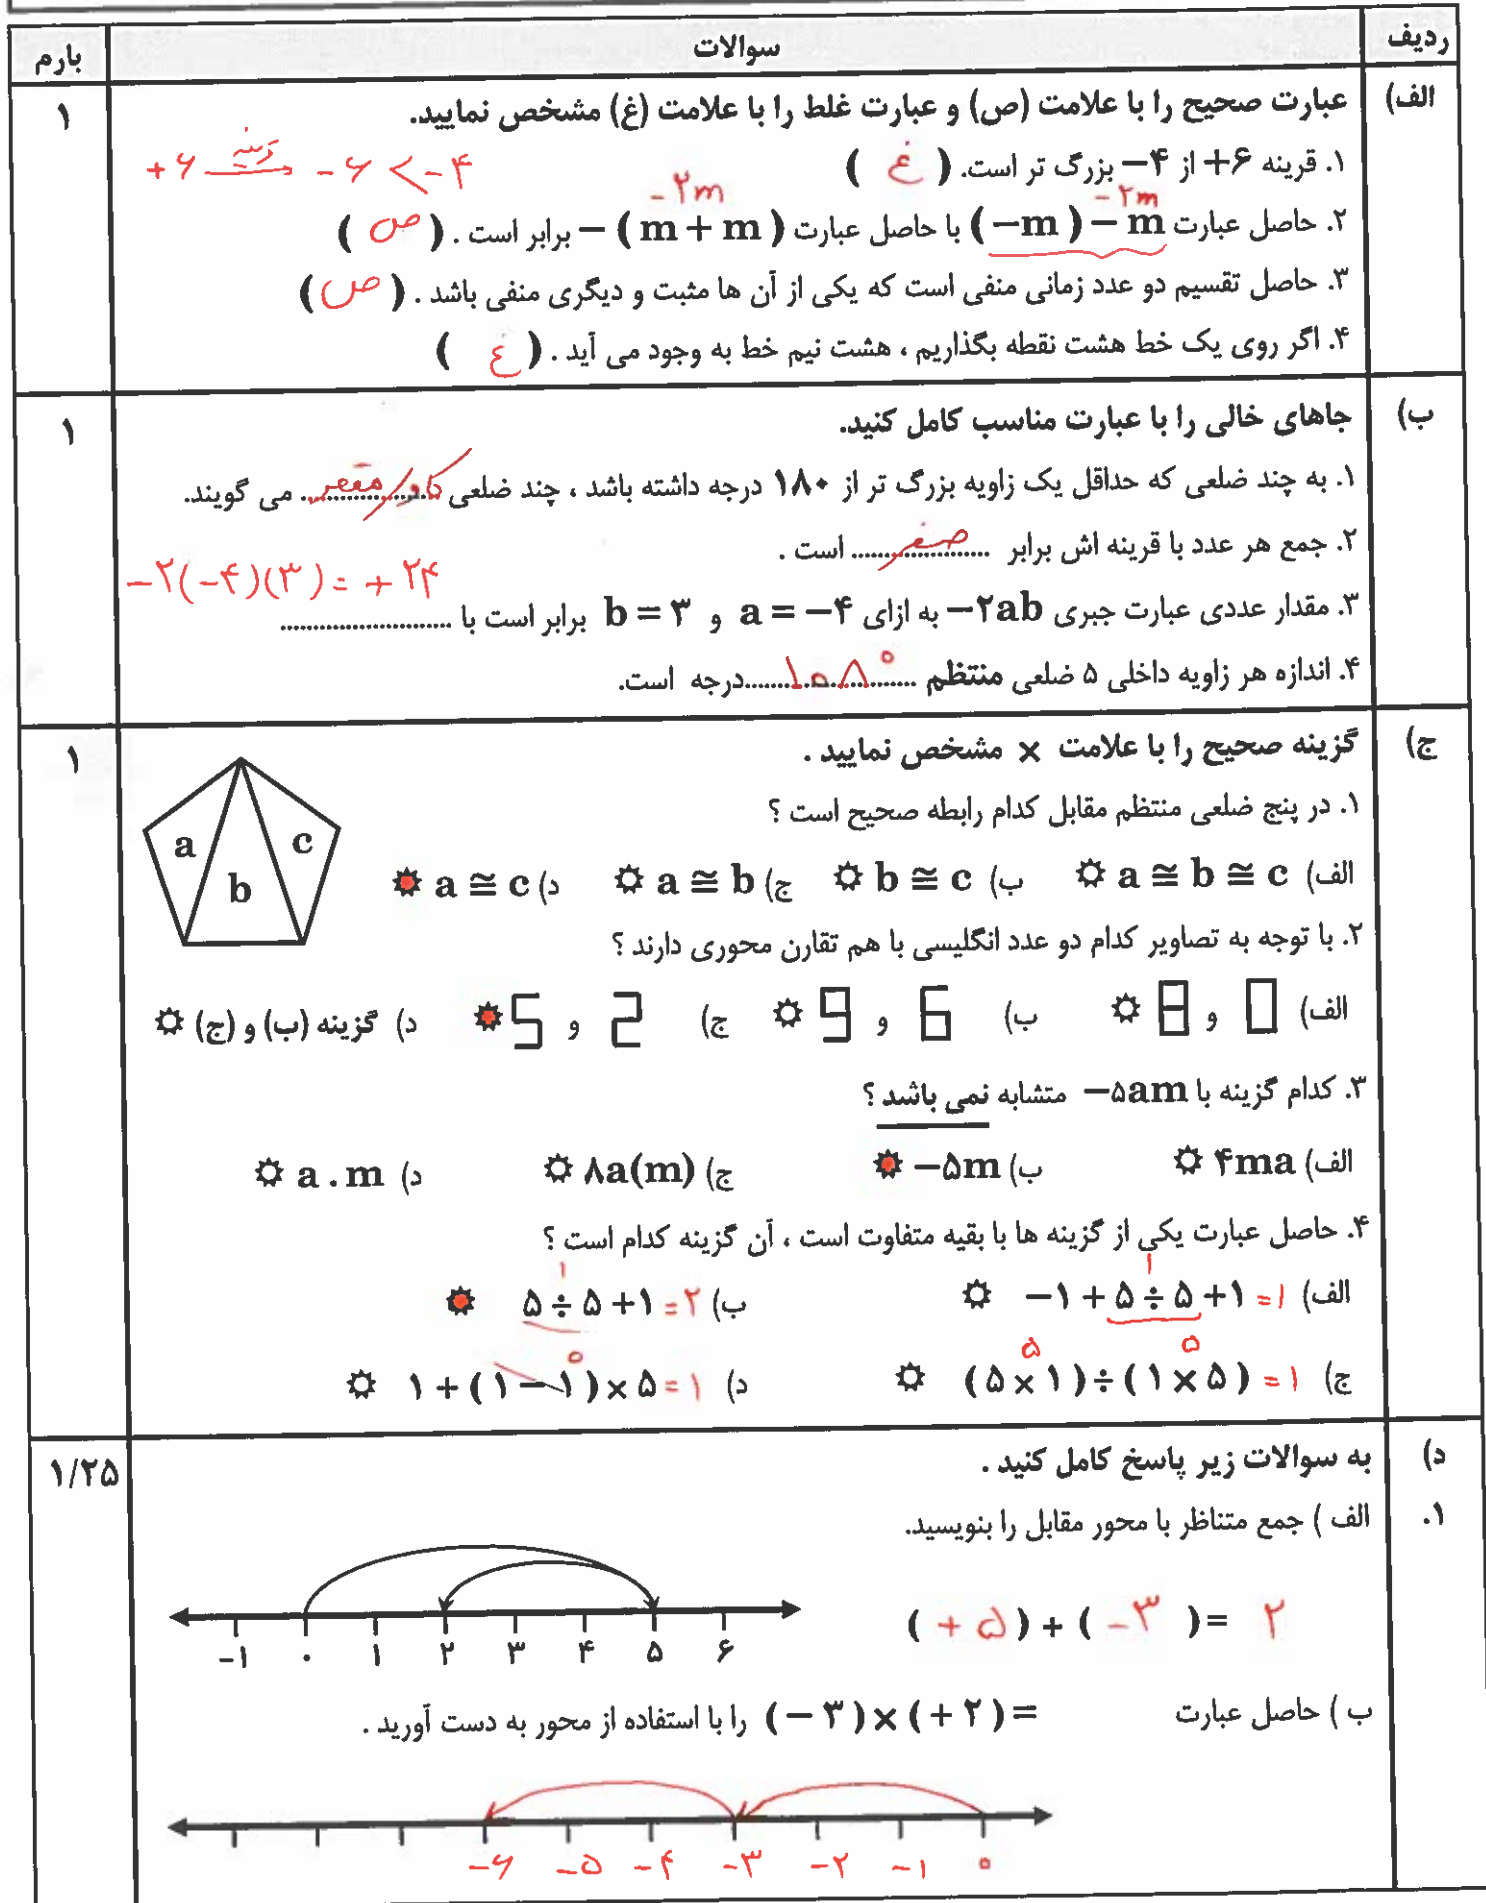 ردیف سوالات بارم
الف) عبارت صحیح را با علامت (ص) و عبارت غلط را با علامت (غ) مشخص نمایید. ۱
۱. قرینه ۶+ از ۴− بزرگ تر است. ( غ ) +۶ قرینه → −۶ < −۴
−۲m −۲m
۲. حاصل عبارت (−m) − m با حاصل عبارت −(m + m) برابر است . ( ص )
۳. حاصل تقسیم دو عدد زمانی منفی است که یکی از آن ها مثبت و دیگری منفی باشد . ( ص )
۴. اگر روی یک خط هشت نقطه بگذاریم ، هشت نیم خط به وجود می آید . ( غ )
ب) جاهای خالی را با عبارت مناسب کامل کنید. ۱
۱. به چند ضلعی که حداقل یک زاویه بزرگ تر از ۱۸۰ درجه داشته باشد ، چند ضلعی کاو/مقعر می گویند.
۲. جمع هر عدد با قرینه اش برابر صفر است .
−۲(−۴)(۳) = +۲۴
۳. مقدار عددی عبارت جبری −۲ab به ازای a = −۴ و b = ۳ برابر است با ..........................
۴. اندازه هر زاویه داخلی ۵ ضلعی منتظم ۱۰۸° درجه است.
ج) گزینه صحیح را با علامت × مشخص نمایید . ۱
۱. در پنج ضلعی منتظم مقابل کدام رابطه صحیح است ؟
a b c
الف) a ≅ b ≅ c ب) b ≅ c ج) a ≅ b د) a ≅ c
۲. با توجه به تصاویر کدام دو عدد انگلیسی با هم تقارن محوری دارند ؟
الف) 0 و 8 ب) 6 و 9 ج) 2 و 5 د) گزینه (ب) و (ج)
۳. کدام گزینه با −۵am متشابه نمی باشد ؟
الف) ۴ma ب) −۵m ج) ۸a(m) د) a . m
۴. حاصل عبارت یکی از گزینه ها با بقیه متفاوت است ، آن گزینه کدام است ؟
۱ ۱
الف) −۱ + ۵ ÷ ۵ + ۱ = ۱ ب) ۵ ÷ ۵ + ۱ = ۲
۵ ۵ ۰
ج) (۵ × ۱) ÷ (۱ × ۵) = ۱ د) ۱ + (۱ − ۱) × ۵ = ۱
د) به سوالات زیر پاسخ کامل کنید . ۱/۲۵
۱. الف ) جمع متناظر با محور مقابل را بنویسید.
( +۵ ) + ( −۳ ) = ۲
−۱ ۰ ۱ ۲ ۳ ۴ ۵ ۶
ب ) حاصل عبارت (−۳) × (+۲) = را با استفاده از محور به دست آورید .
−۶ −۵ −۴ −۳ −۲ −۱ ۰